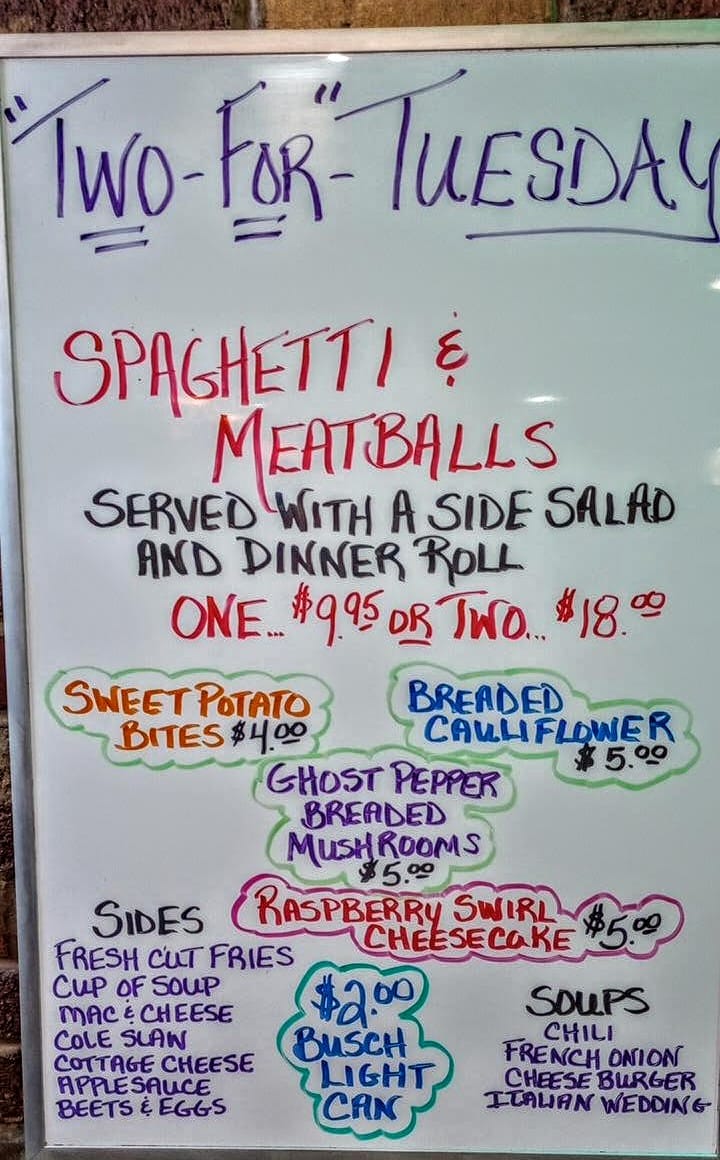 "Two-For" - Tuesday
SPAGHETTI &
MEATBALLS
SERVED WITH A SIDE SALAD
AND DINNER ROLL
ONE... $9.95 OR TWO... $18.00
SWEET POTATO
BITES $4.00
BREADED
CAULIFLOWER
$5.00
GHOST PEPPER
BREADED
MUSHROOMS
$5.00
RASPBERRY SWIRL
CHEESECAKE $5.00
SIDES
FRESH CUT FRIES
CUP OF SOUP
MAC & CHEESE
COLE SLAW
COTTAGE CHEESE
APPLESAUCE
BEETS & EGGS
$2.00
BUSCH
LIGHT
CAN
SOUPS
CHILI
FRENCH ONION
CHEESE BURGER
ITALIAN WEDDING